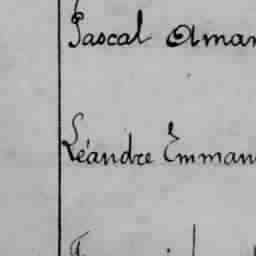 Pascal Aman
Léandre Emman